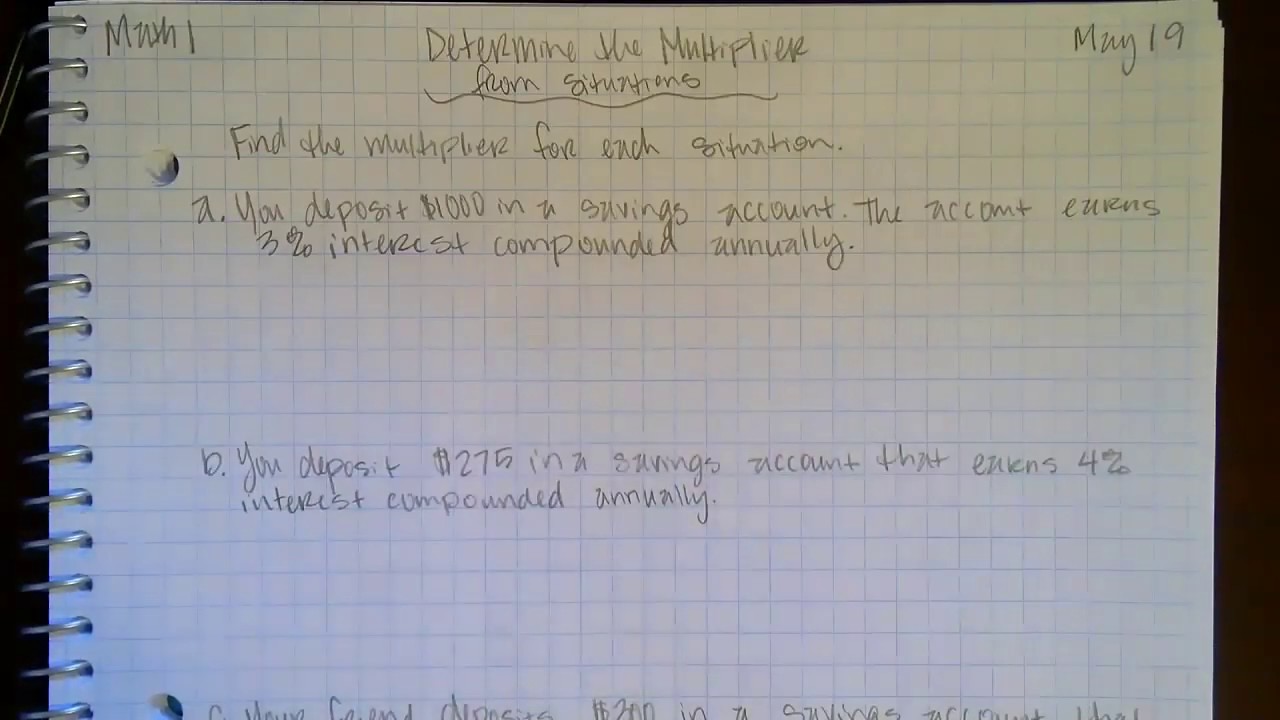 Math 1
Determine the Multiplier
May 19
from situations
Find the multiplier for each situation.
a. You deposit $1000 in a savings account. The account earns
3% interest compounded annually.
b. You deposit $275 in a savings account that earns 4%
interest compounded annually.
c. Your friend deposits $200 in a savings account that